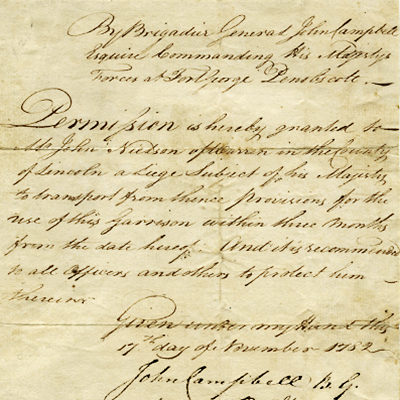 By Brigadier General John Campbell
Esquire Commanding His Majestys
Forces at Fort George Penobscote.
Permission is hereby granted to
Mr John Neilson of Warren in the County
of Lincoln a Liege Subject of his Majesty
to transport from thence provisions for the
use of this Garrison within three months
from the date hereof. And it is recommended
to all Officers and others to protect him
therein
Given under my Hand this
17th day of November 1782
John Campbell B.G.